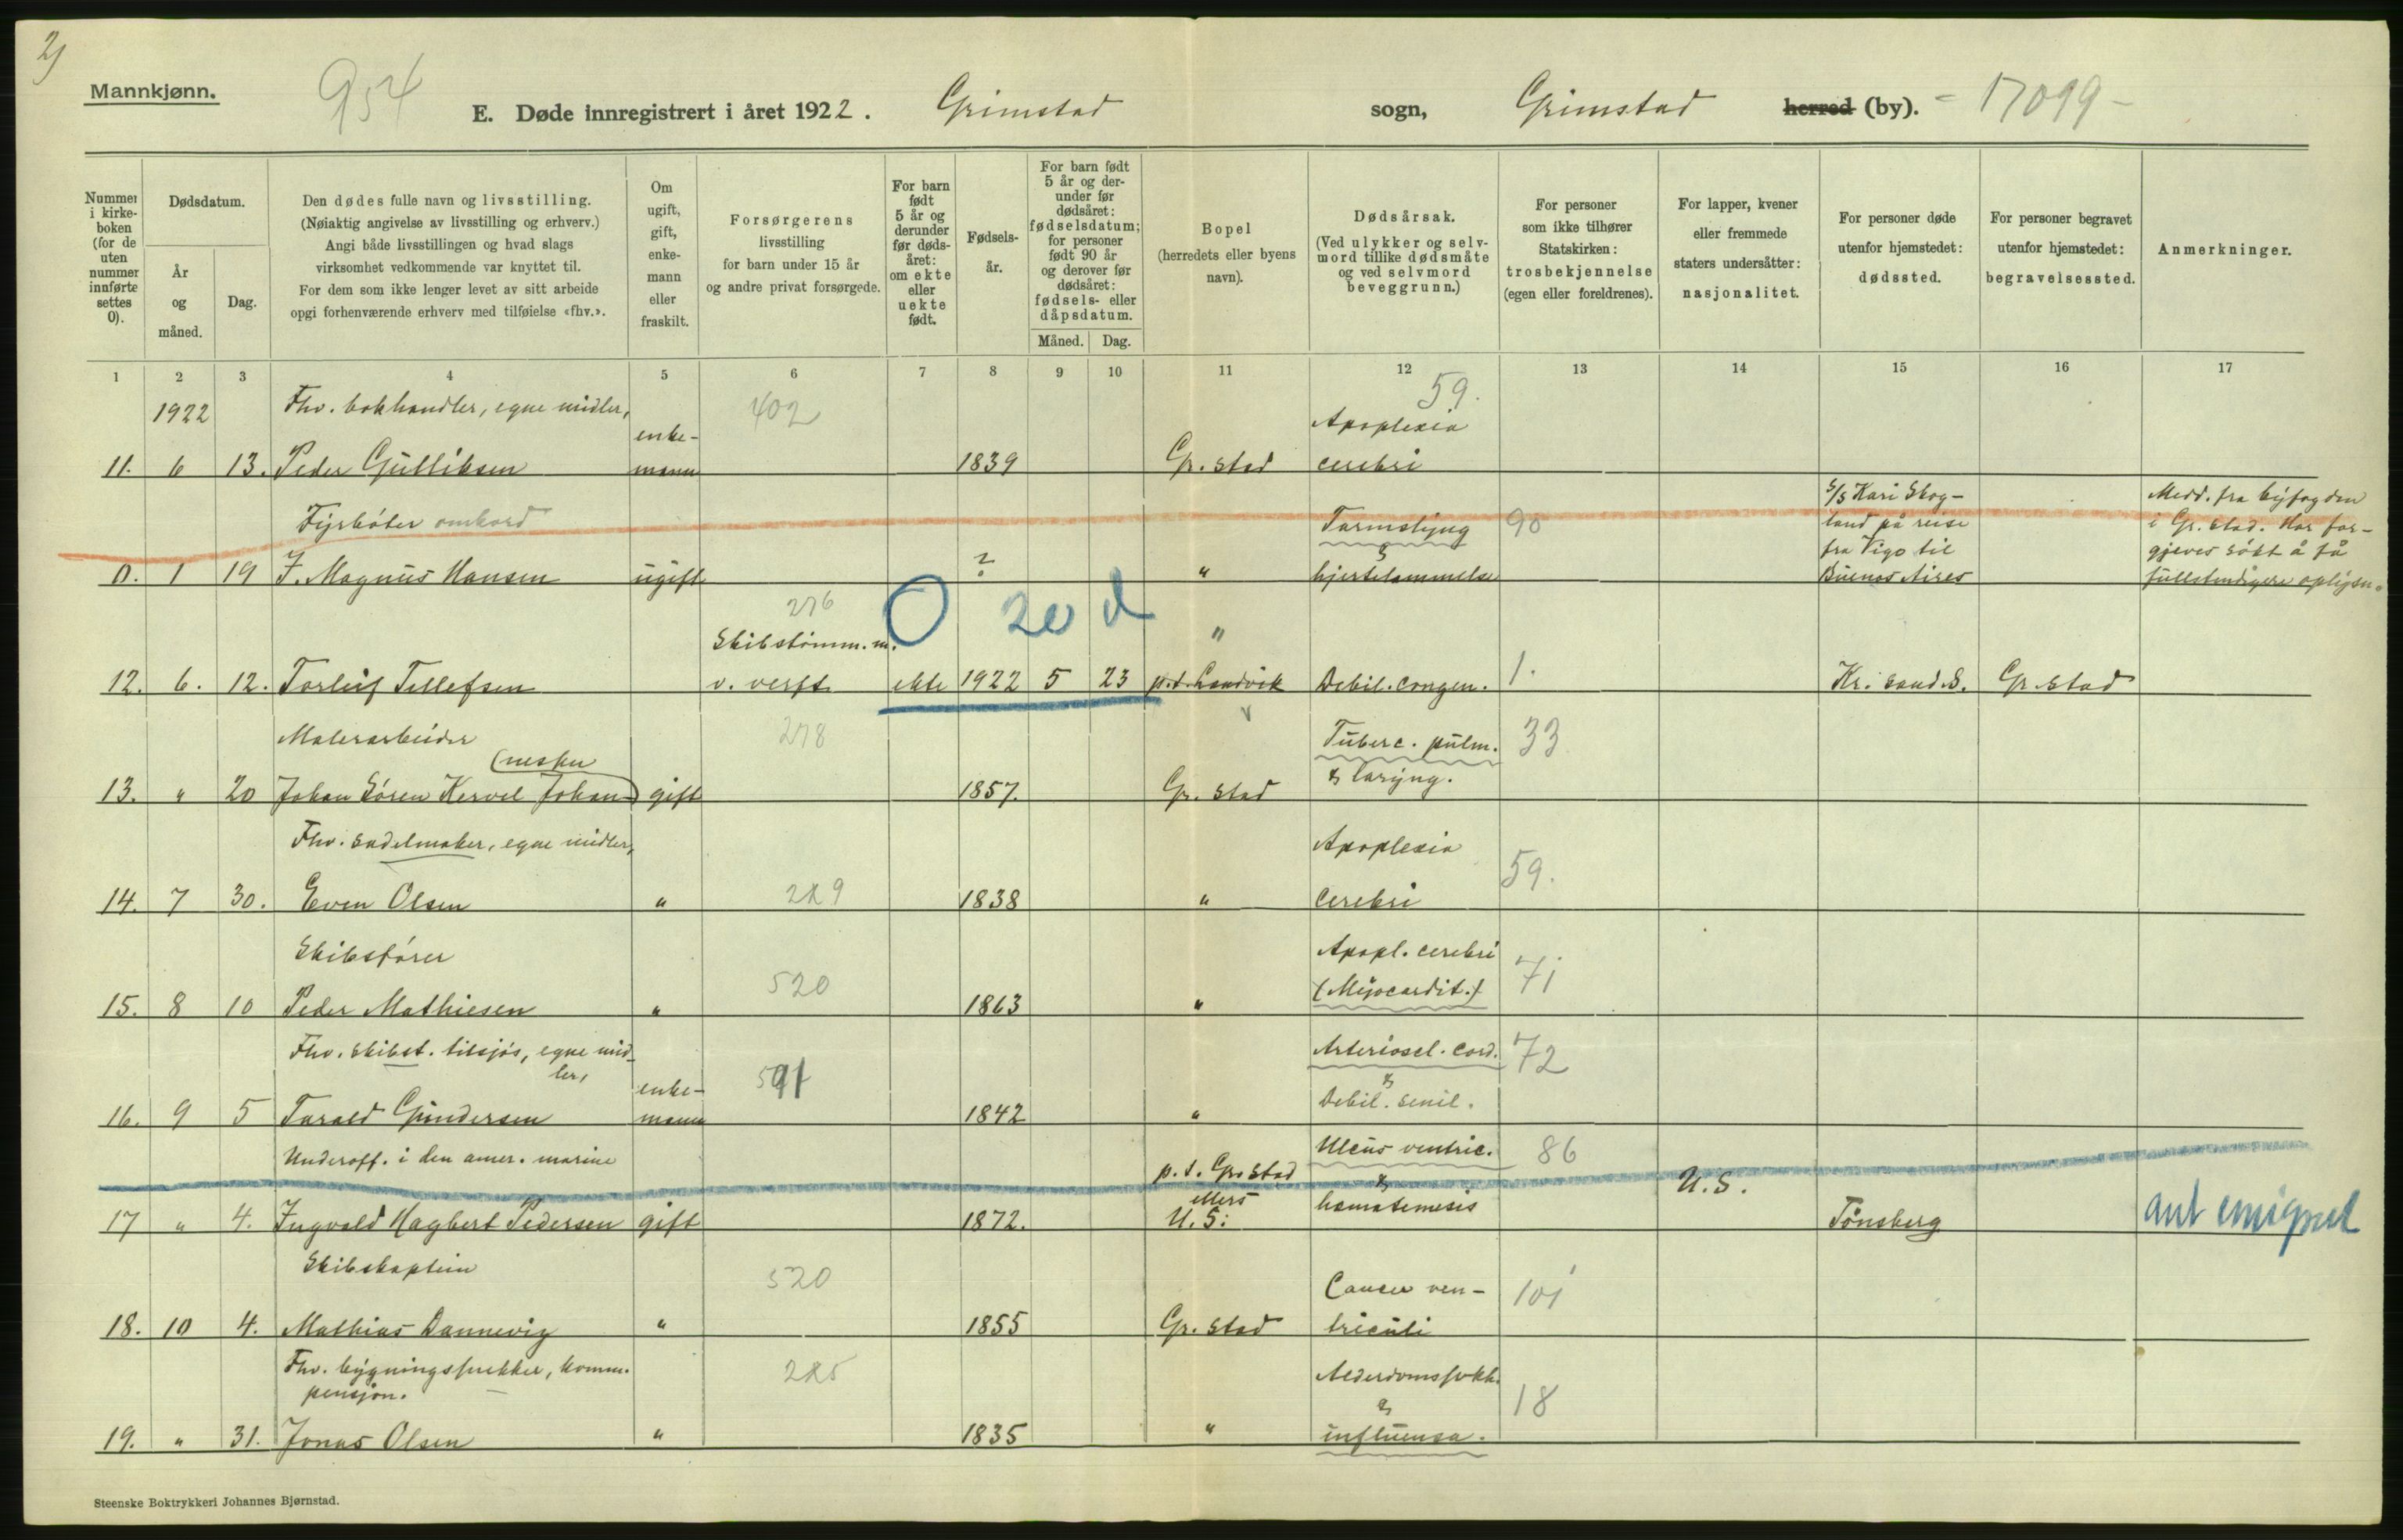 2)
Mannkjønn.
954
E. Døde innregistrert i året 1922. Grimstad sogn, Grimstad herred (by). - 17099 -
Nummer i kirkeboken (for de uten nummer innførte settes 0).
Dødsdatum.
År og måned.
Dag.
Den dødes fulle navn og livsstilling.
(Nøiaktig angivelse av livsstilling og erhverv.)
Angi både livsstillingen og hvad slags
virksomhet vedkommende var knyttet til.
For dem som ikke lenger levet av sitt arbeide
opgi forhenværende erhverv med tilføielse «fhv.».
Om ugift, gift, enkemann eller fraskilt.
Forsørgerens
livsstilling
for barn under 15 år
og andre privat forsørgede.
For barn født 5 år og derunder før dødsåret: om ekte eller uekte født.
Fødselsår.
For barn født 5 år og derunder før dødsåret: fødselsdatum; for personer født 90 år og derover før dødsåret: fødsels- eller dåpsdatum.
Måned. Dag.
Bopel
(herredets eller byens
navn).
Dødsårsak.
(Ved ulykker og selvmord tillike dødsmåte og ved selvmord beveggrunn.)
For personer
som ikke tilhører
Statskirken:
trosbekjennelse
(egen eller foreldrenes).
For lapper, kvener
eller fremmede
staters undersåtter:
nasjonalitet.
For personer døde
utenfor hjemstedet:
dødssted.
For personer begravet
utenfor hjemstedet:
begravelsessted.
Anmerkninger.
1 2 3 4 5 6 7 8 9 10 11 12 13 14 15 16 17
1922 Fhv. bokhandler, egne midler, 402 59.
enke- Apoplexia
11. 6 13. Peder Gulliksen mann 1839 Gr. stad cerebri
S/S Kari Skog- Medd. fra byfogden
Fyrbøter ombord Tarmslyng 90 land på reise i Gr. stad. Har for-
& fra Vigo til gjeves søkt å få
0. 1 19 J. Magnus Hansen ugift ? " hjertelammelse Buenos Aires fullstendigere oplysn.
276 0 20 d
Skibstømm. m. "
12. 6. 12. Torleif Tellefsen v. verft ekte 1922 5 23 p.t. Landvik Debil. congen. 1. Kr. sand S. Gr. stad
Malerarbeider 278 Tuberc. pulm. 33
(neskn & laryng.
13. " 20 Johan Søren Kervel Johan) gift 1857. Gr. stad
Fhv. sadelmaker, egne midler, Apoplexia
14. 7 30. Even Olsen " 229 1838 " cerebri 59.
Skibsfører Apopl. cerebri
520 (Myocardit.) 71
15. 8 10 Peder Mathiesen " 1863 "
Fhv. skibst. tilsjøs, egne mid- Arterioscl. cord. 72
ler, enke- &
16. 9 5 Tarald Gundersen mann 1842 " Debil. senil.
Underoff. i den amer. marine Ulcus ventric. 86
p.t. Gr. stad & U.S.
ellers
17 " 4. Ingvald Hagbert Pedersen gift 1872. U.S: hæmatemesis Tønsberg ant emigrert
Skibskaptein 520 Cancer ven- 101
18. 10 4. Mathias Dannevig " 1855 Gr. stad triculi
Fhv. bygningssnekker, komm. 225 Alderdomssvakh.
pensjon. & 18
19. " 31. Jonas Olsen " 1835 " influensa.
Steenske Boktrykkeri Johannes Bjørnstad.